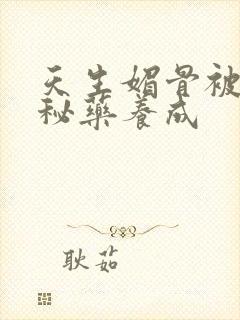 天生媚骨被
秘药养成
耿茹